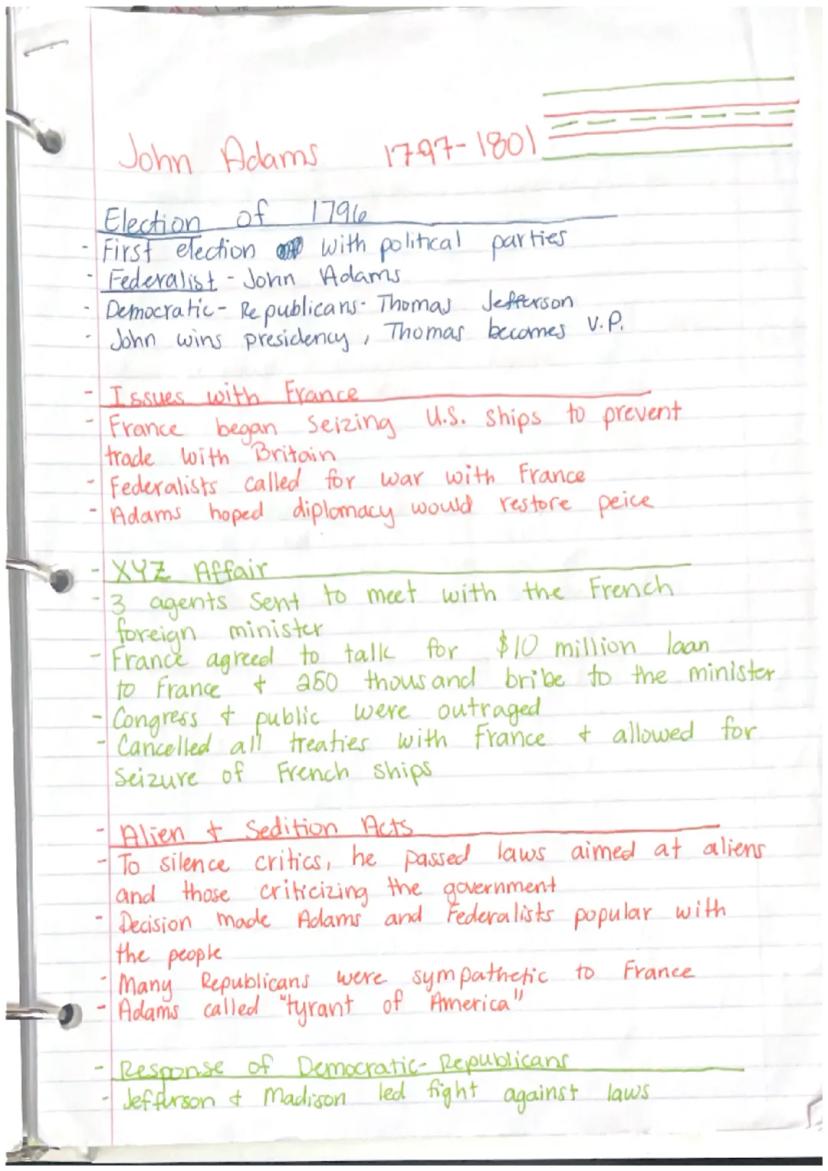 John Adams 1797-1801
Election of 1796
- First election with political parties
- Federalist - John Adams
- Democratic-Republicans- Thomas Jefferson
- John wins presidency, Thomas becomes V.P.
- Issues with France
- France began seizing U.S. ships to prevent
trade with Britain
- Federalists called for war with France
- Adams hoped diplomacy would restore peice
- XYZ Affair
- 3 agents sent to meet with the French
foreign minister
- France agreed to talk for $10 million loan
to France + 250 thousand bribe to the minister
- Congress + public were outraged
- Cancelled all treaties with France + allowed for
seizure of French ships
- Alien + Sedition Acts
- To silence critics, he passed laws aimed at aliens
and those criticizing the government
- Decision made Adams and Federalists popular with
the people
- Many Republicans were sympathetic to France
- Adams called "tyrant of America"
- Response of Democratic-Republicans
- Jefferson + Madison led fight against laws